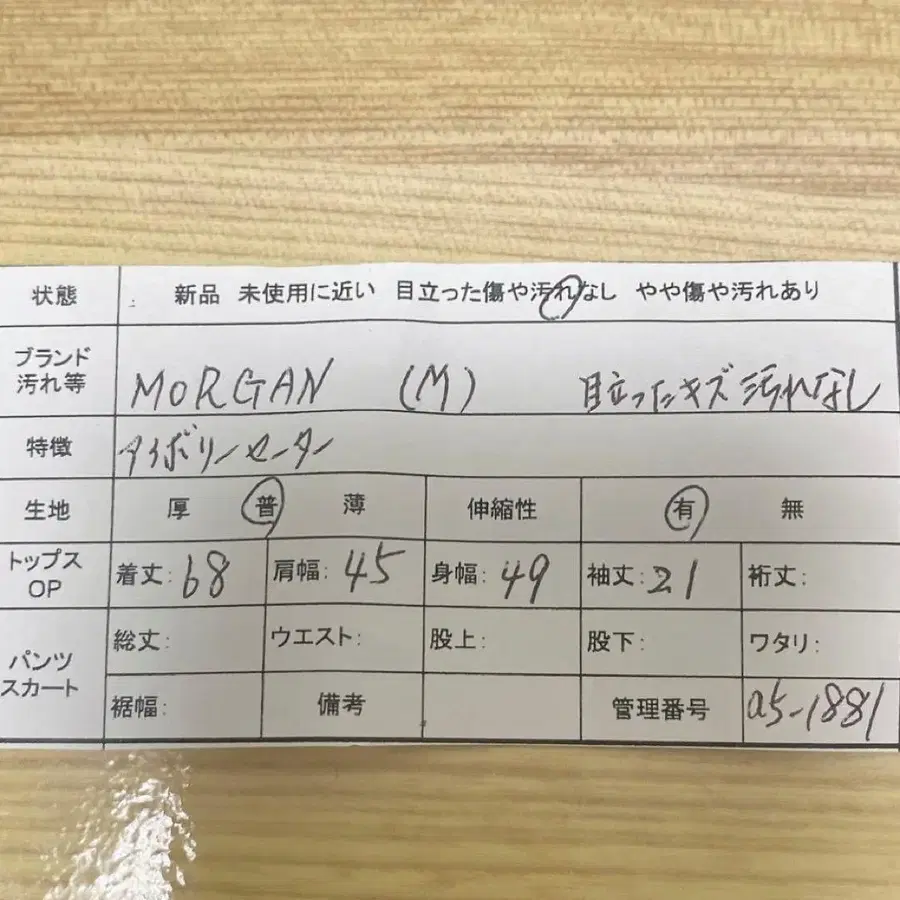 状態 新品 未使用に近い 目立った傷や汚れなし やや傷や汚れあり
ブランド
汚れ等 MORGAN (M) 目立ったキズ汚れなし
特徴 アイボリーセーター
生地 厚 普 薄 伸縮性 有 無
トップス
OP 着丈: 68 肩幅: 45 身幅: 49 袖丈: 21 裄丈:
パンツ
スカート 総丈: ウエスト: 股上: 股下: ワタリ:
裾幅: 備考 管理番号 a5-1881